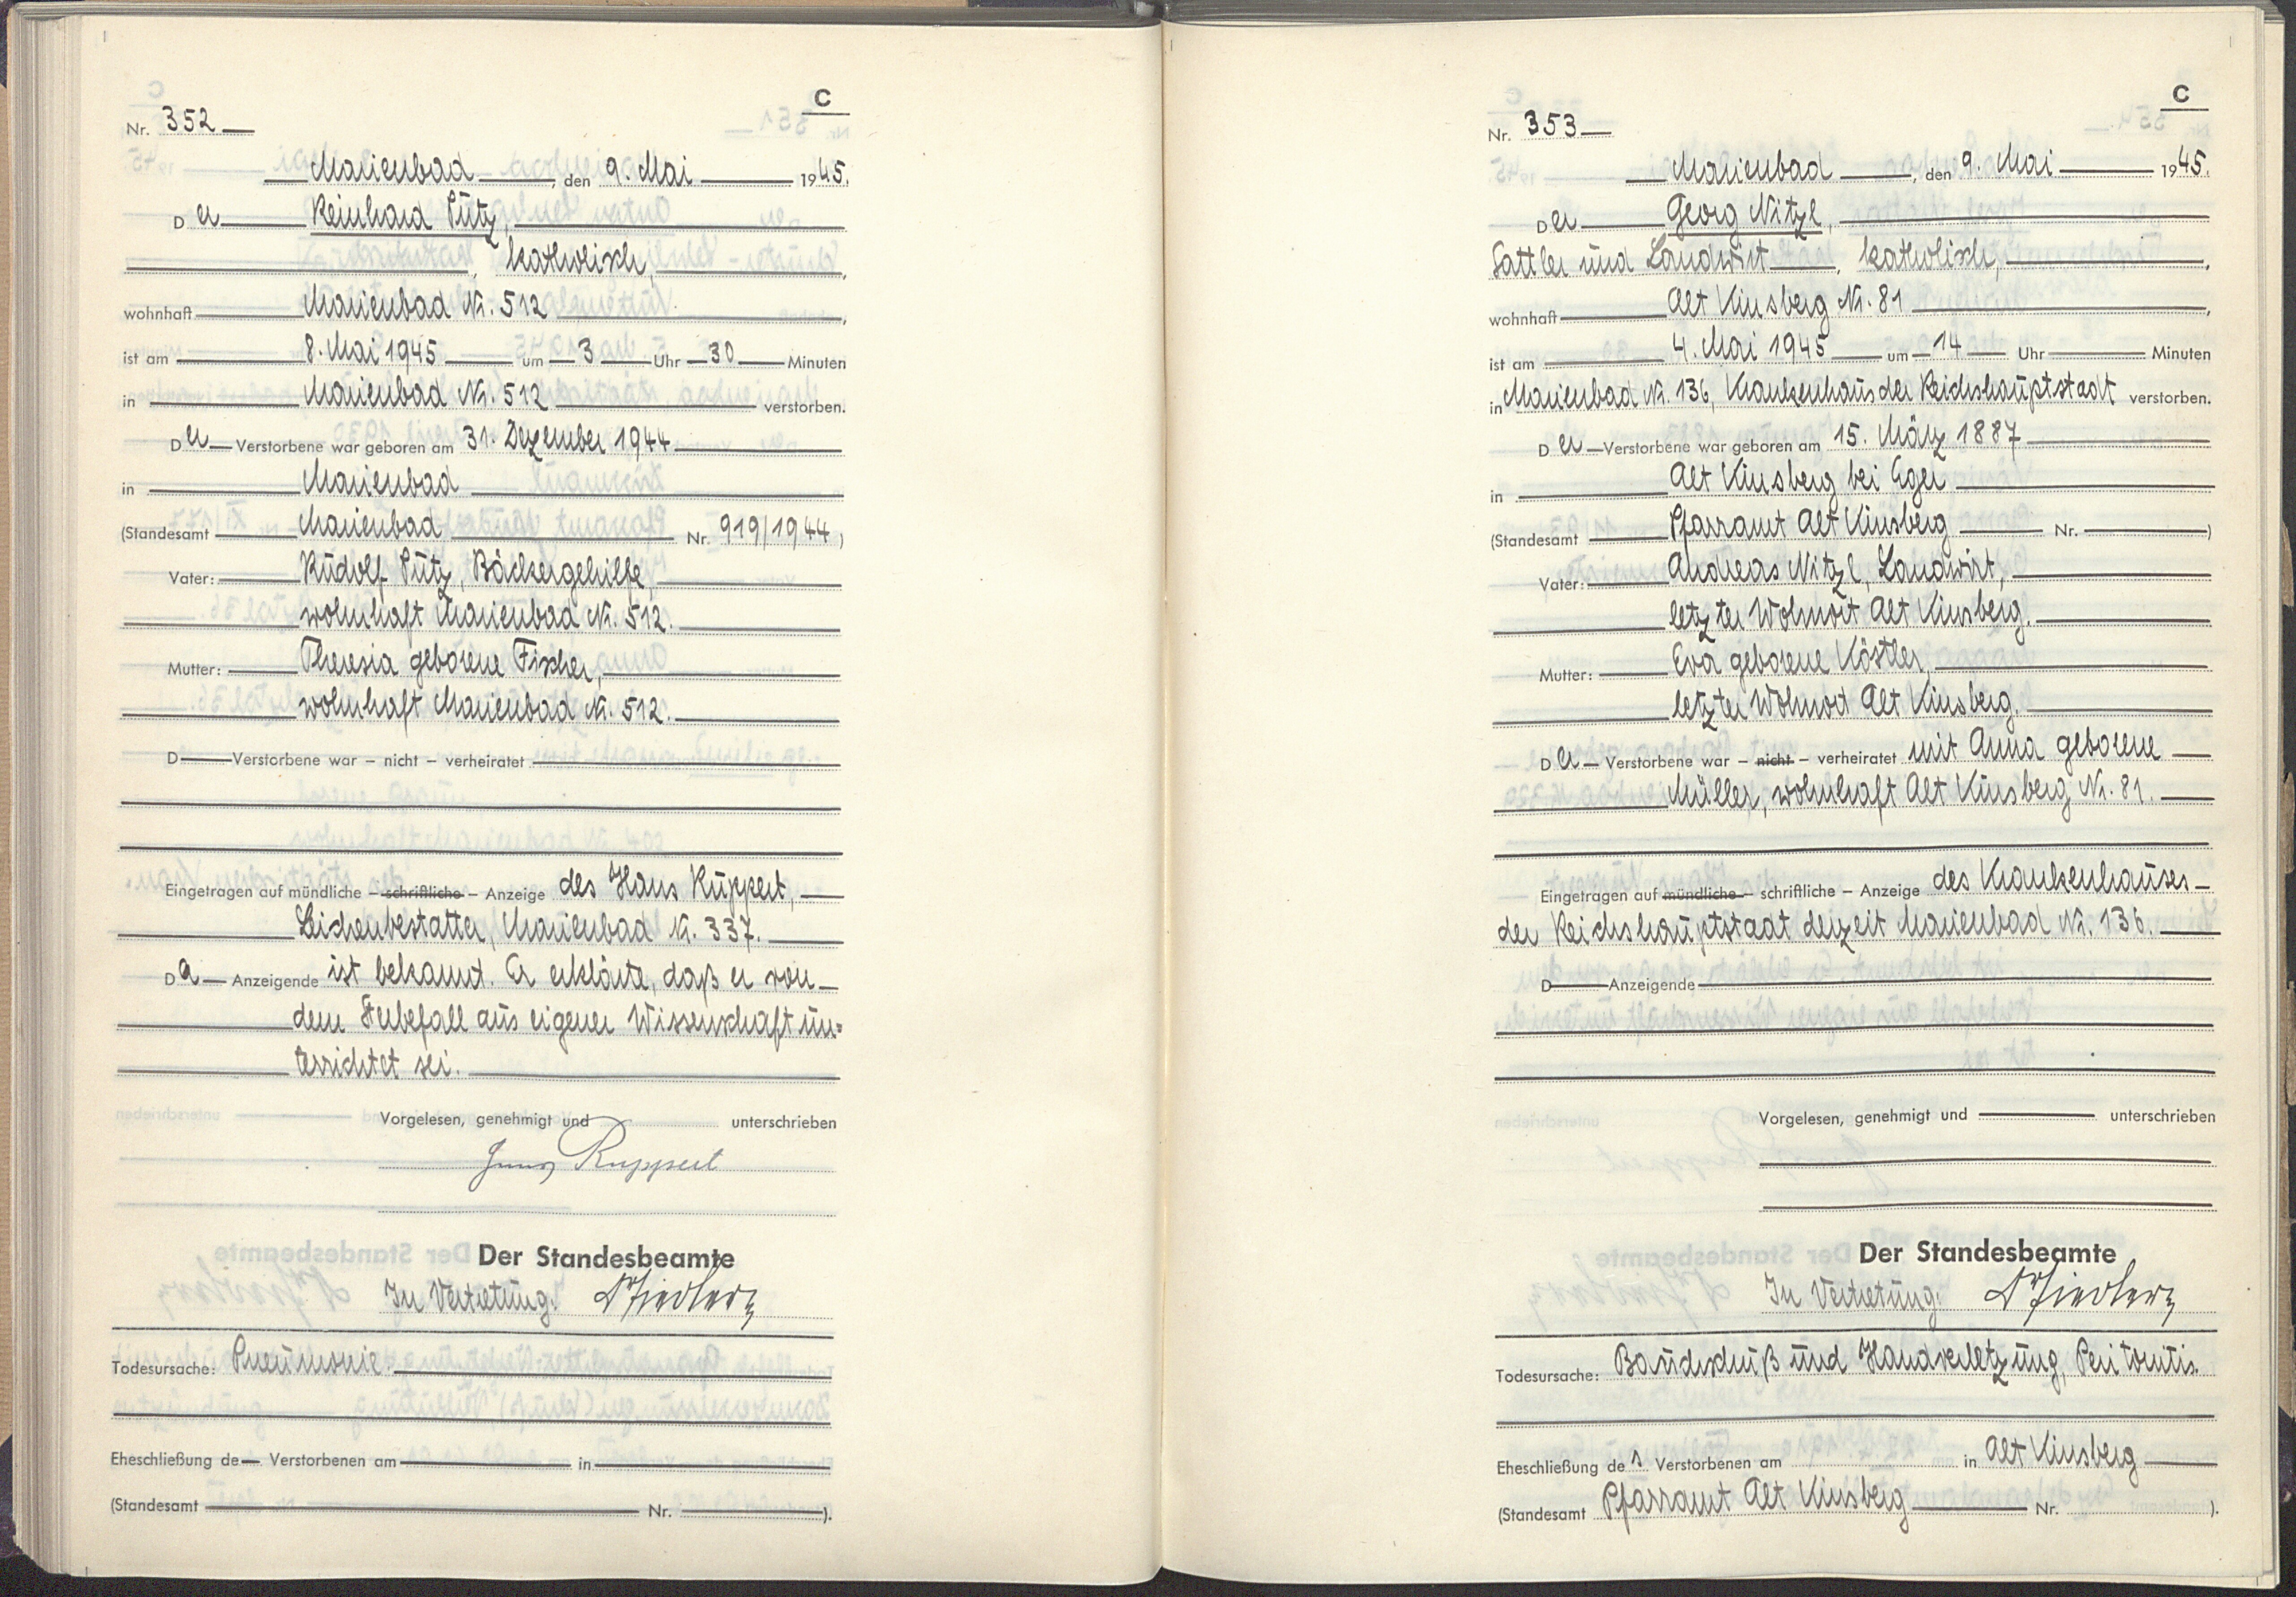 C
Nr. 352
Marienbad, den 9. Mai 1945.
Der Reinhard Pütz,
, katholisch,
wohnhaft Marienbad Nr. 512,
ist am 8. Mai 1945 um 3 Uhr 30 Minuten
in Marienbad Nr. 512 verstorben.
Der Verstorbene war geboren am 31. Dezember 1944
in Marienbad
(Standesamt Marienbad Nr. 919/1944)
Vater: Rudolf Pütz, Bäckergehilfe,
wohnhaft Marienbad Nr. 512.
Mutter: Theresia geborene Fischer,
wohnhaft Marienbad Nr. 512.
D Verstorbene war – nicht – verheiratet
Eingetragen auf mündliche – schriftliche – Anzeige des Hans Ruppert,
Leichenbestatter, Marienbad Nr. 337.
Der Anzeigende ist bekannt. Er erklärte, daß er von
dem Sterbefall aus eigener Wissenschaft un=
terrichtet sei.
Vorgelesen, genehmigt und unterschrieben
Hans Ruppert
Der Standesbeamte
In Vertretung:
Todesursache: Pneumonie.
Eheschließung de Verstorbenen am in
(Standesamt Nr. ).
C
Nr. 353
Marienbad, den 9. Mai 1945.
Der Georg Nitzl,
Sattler und Landwirt, katholisch,
wohnhaft Alt Kinsberg Nr. 81,
ist am 4. Mai 1945 um 14 Uhr Minuten
in Marienbad Nr. 136, Krankenhaus der Reichshauptstadt verstorben.
Der Verstorbene war geboren am 15. März 1887
in Alt Kinsberg bei Eger
(Standesamt Pfarramt Alt Kinsberg Nr. )
Vater: Andreas Nitzl, Landwirt,
letzter Wohnort Alt Kinsberg.
Mutter: Eva geborene Köstler,
letzter Wohnort Alt Kinsberg.
Der Verstorbene war – nicht – verheiratet mit Anna geborene
Müller, wohnhaft Alt Kinsberg Nr. 81.
Eingetragen auf mündliche – schriftliche – Anzeige des Krankenhauses
der Reichshauptstadt derzeit Marienbad Nr. 136.
D Anzeigende
Vorgelesen, genehmigt und unterschrieben
Der Standesbeamte
In Vertretung:
Todesursache: Bauchschuß und Handverletzung, Peritonitis
Eheschließung des Verstorbenen am in Alt Kinsberg
(Standesamt Pfarramt Alt Kinsberg Nr. ).